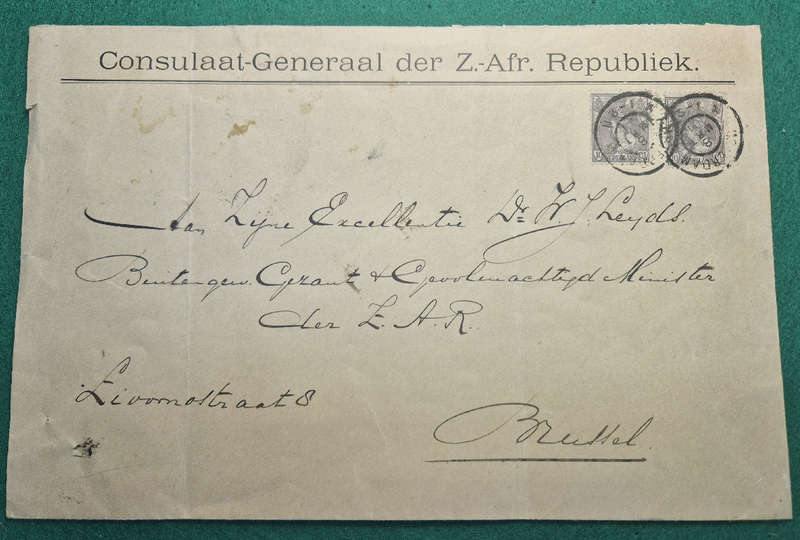 Consulaat-Generaal der Z.-Afr. Republiek.
Aan Zijne Excellentie Dr. W. J. Leyds.
Buitengew. Gezant & Gevolmachtigd Minister
der Z. A. R.
Livornostraat 8
Brussel.